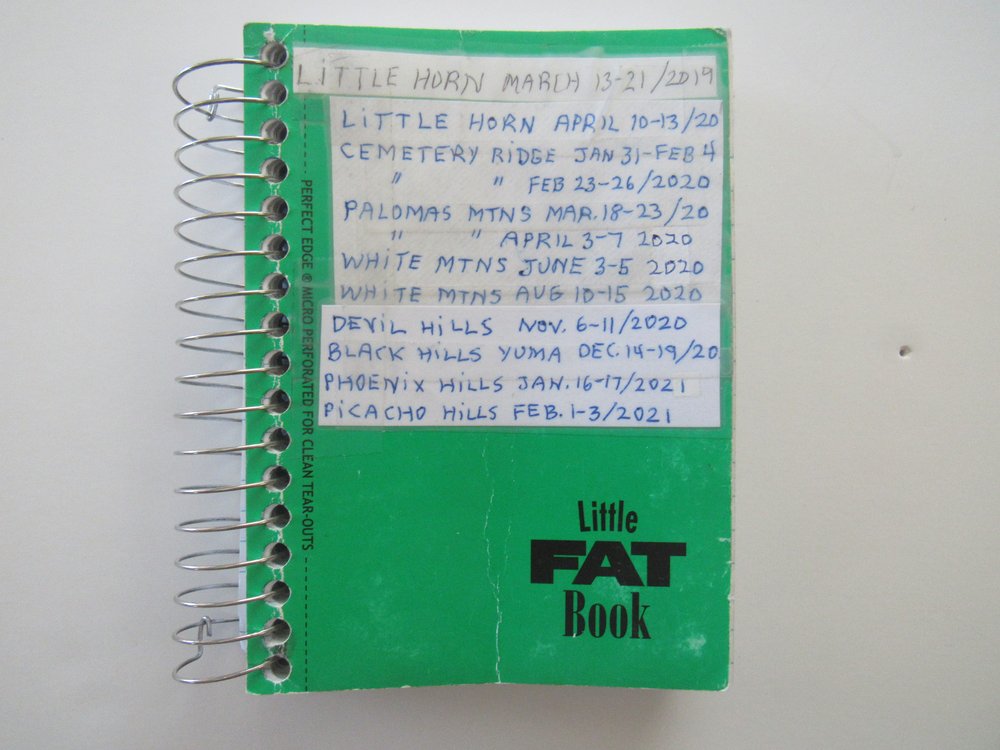 LITTLE HORN MARCH 13-21/2019
LITTLE HORN APRIL 10-13/20
CEMETERY RIDGE JAN 31-FEB 4
" " FEB 23-26/2020
PALOMAS MTNS MAR. 18-23/20
" " APRIL 3-7 2020
WHITE MTNS JUNE 3-5 2020
WHITE MTNS AUG 10-15 2020
DEVIL HILLS NOV. 6-11/2020
BLACK HILLS YUMA DEC. 14-19/20
PHOENIX HILLS JAN. 16-17/2021
PICACHO HILLS FEB. 1-3/2021
PERFECT EDGE ® MICRO PERFORATED FOR CLEAN TEAR-OUTS
Little
FAT
Book